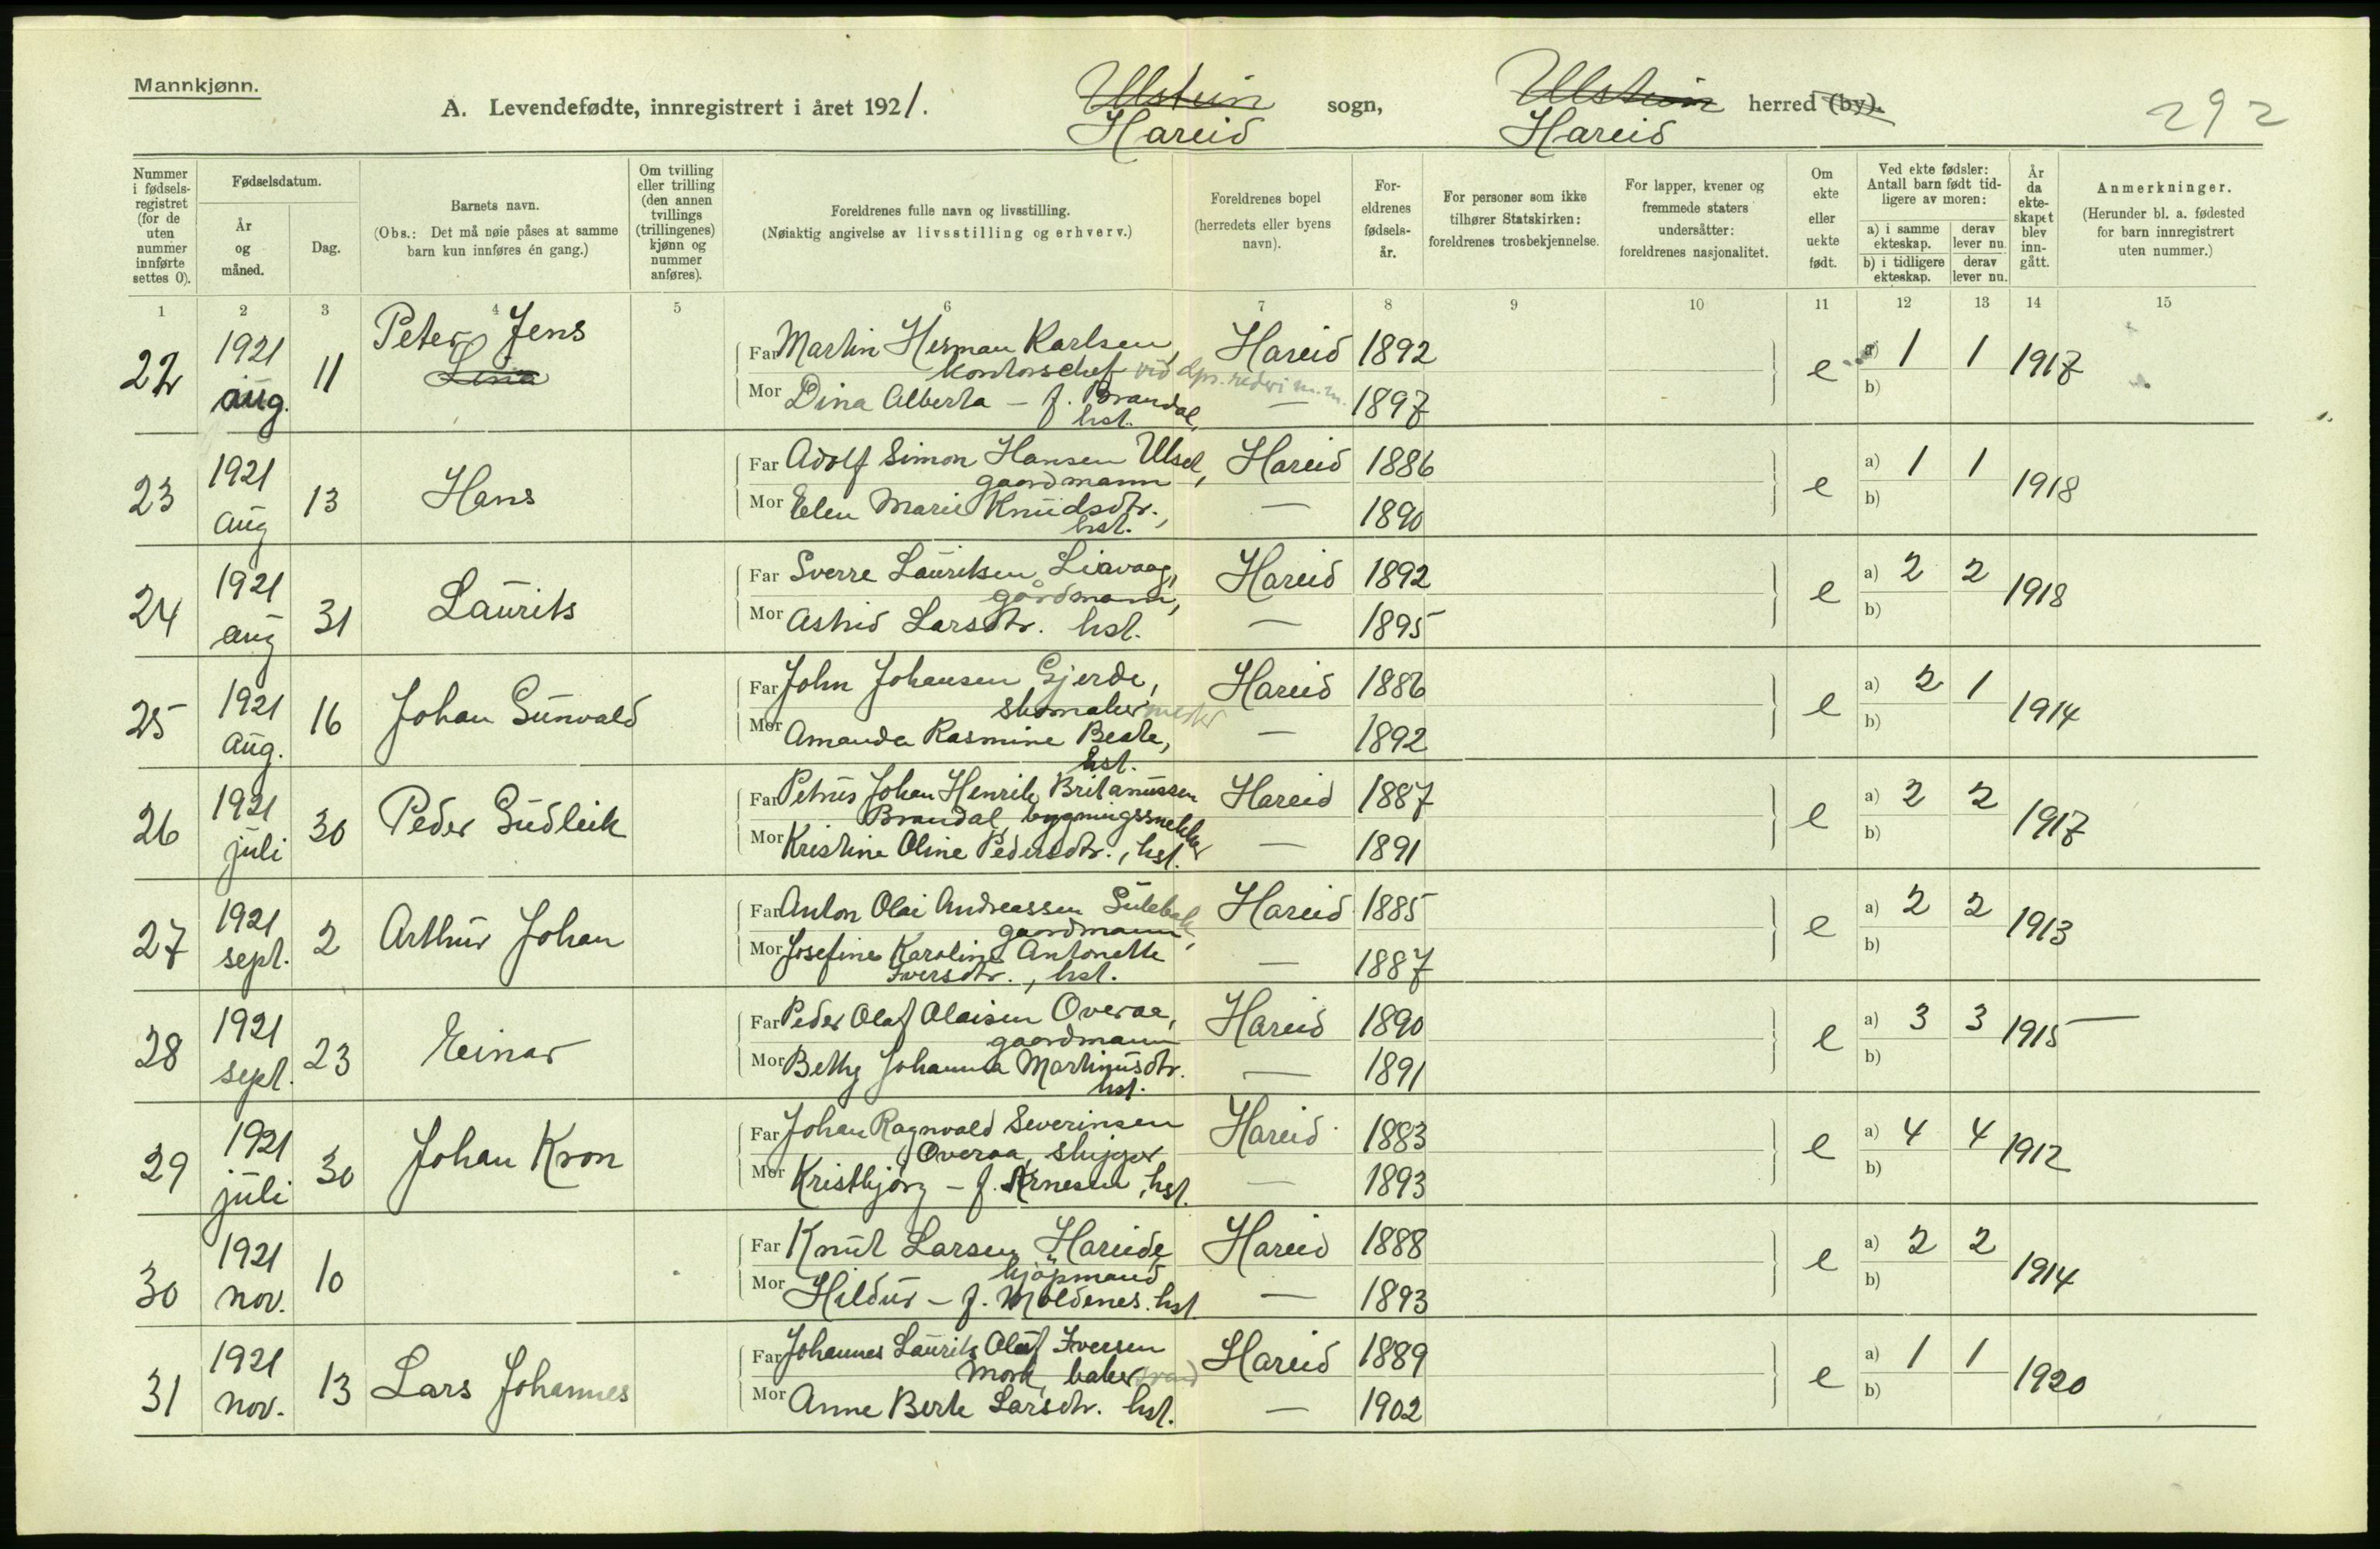 Mannkjønn.
A. Levendefødte, innregistrert i året 1921. Ulstein sogn, Ulstein herred (by).
Hareid Hareid
292
Nummer i fødsels-registret (for de uten nummer innførte settes 0).
Fødselsdatum.
År og måned.
Dag.
Barnets navn.
(Obs.: Det må nøie påses at samme barn kun innføres én gang.)
Om tvilling eller trilling (den annen tvillings (trillingenes) kjønn og nummer anføres).
Foreldrenes fulle navn og livsstilling.
(Nøiaktig angivelse av livsstilling og erhverv.)
Foreldrenes bopel
(herredets eller byens navn).
For-eldrenes fødsels-år.
For personer som ikke tilhører Statskirken: foreldrenes trosbekjennelse.
For lapper, kvener og fremmede staters undersåtter: foreldrenes nasjonalitet.
Om ekte eller uekte født.
Ved ekte fødsler: Antall barn født tid-ligere av moren:
a) i samme ekteskap.
derav lever nu.
b) i tidligere ekteskap.
derav lever nu.
År da ekte-skapet blev inn-gått.
Anmerkninger.
(Herunder bl. a. fødested for barn innregistrert uten nummer.)
1 2 3 4 5 6 7 8 9 10 11 12 13 14 15
22 1921 aug. 11 Peter Jens
Lina
Far Martin Herman Karlsen, Hareid 1892 e a) 1 1 1917
kontorschef
Mor Dina Alberta - f. Brandal, — 1897 b)
hst.
23 1921 aug 13 Hans
Far Adolf Simon Hansen Ulset, Hareid 1886 e a) 1 1 1918
gaardmann
Mor Elen Marie Knudsdtr., — 1890 b)
hst.
24 1921 aug 31 Laurits
Far Sverre Lauritsen Liavaag, Hareid 1892 e a) 2 2 1918
gårdmann,
Mor Astrid Larsdtr. hst. — 1895 b)
25 1921 aug. 16 Johan Gunvald
Far John Johansen Gjerde, Hareid 1886 e a) 2 1 1914
skomakermester
Mor Amanda Rasmine Beate, — 1892 b)
hst.
26 1921 juli 30 Peder Gudleik
Far Petrus Johan Henrik Britanussen Hareid 1887 e a) 2 2 1917
Brandal, bygningssnekker
Mor Kristine Oline Pedersdtr., hst. — 1891 b)
27 1921 sept. 2 Arthur Johan
Far Anton Olai Andreassen Sulebak, Hareid 1885 e a) 2 2 1913
gaardmann
Mor Josefine Karoline Antonette — 1887 b)
Iversdtr., hst.
28 1921 sept. 23 Einar
Far Peder Olaf Olaisen Overaa, Hareid 1890 e a) 3 3 1915 —
gaardmann
Mor Betty Johanna Martinusdtr. — 1891 b)
hst.
29 1921 juli 30 Johan Kron
Far Johan Ragnvald Severinsen Hareid 1883 e a) 4 4 1912
Overaa, skipper
Mor Kristbjørg - f. Arnesen, hst. — 1893 b)
30 1921 nov. 10
Far Knut Larsen Hareide Hareid 1888 e a) 2 2 1914
kjøpmand
Mor Hildur - f. Moldenes. hst — 1893 b)
31 1921 nov. 13 Lars Johannes
Far Johannes Laurits Olaf Iversen Hareid 1889 e a) 1 1 1920
Mork, baker
Mor Anne Berte Larsdtr. hst. — 1902 b)